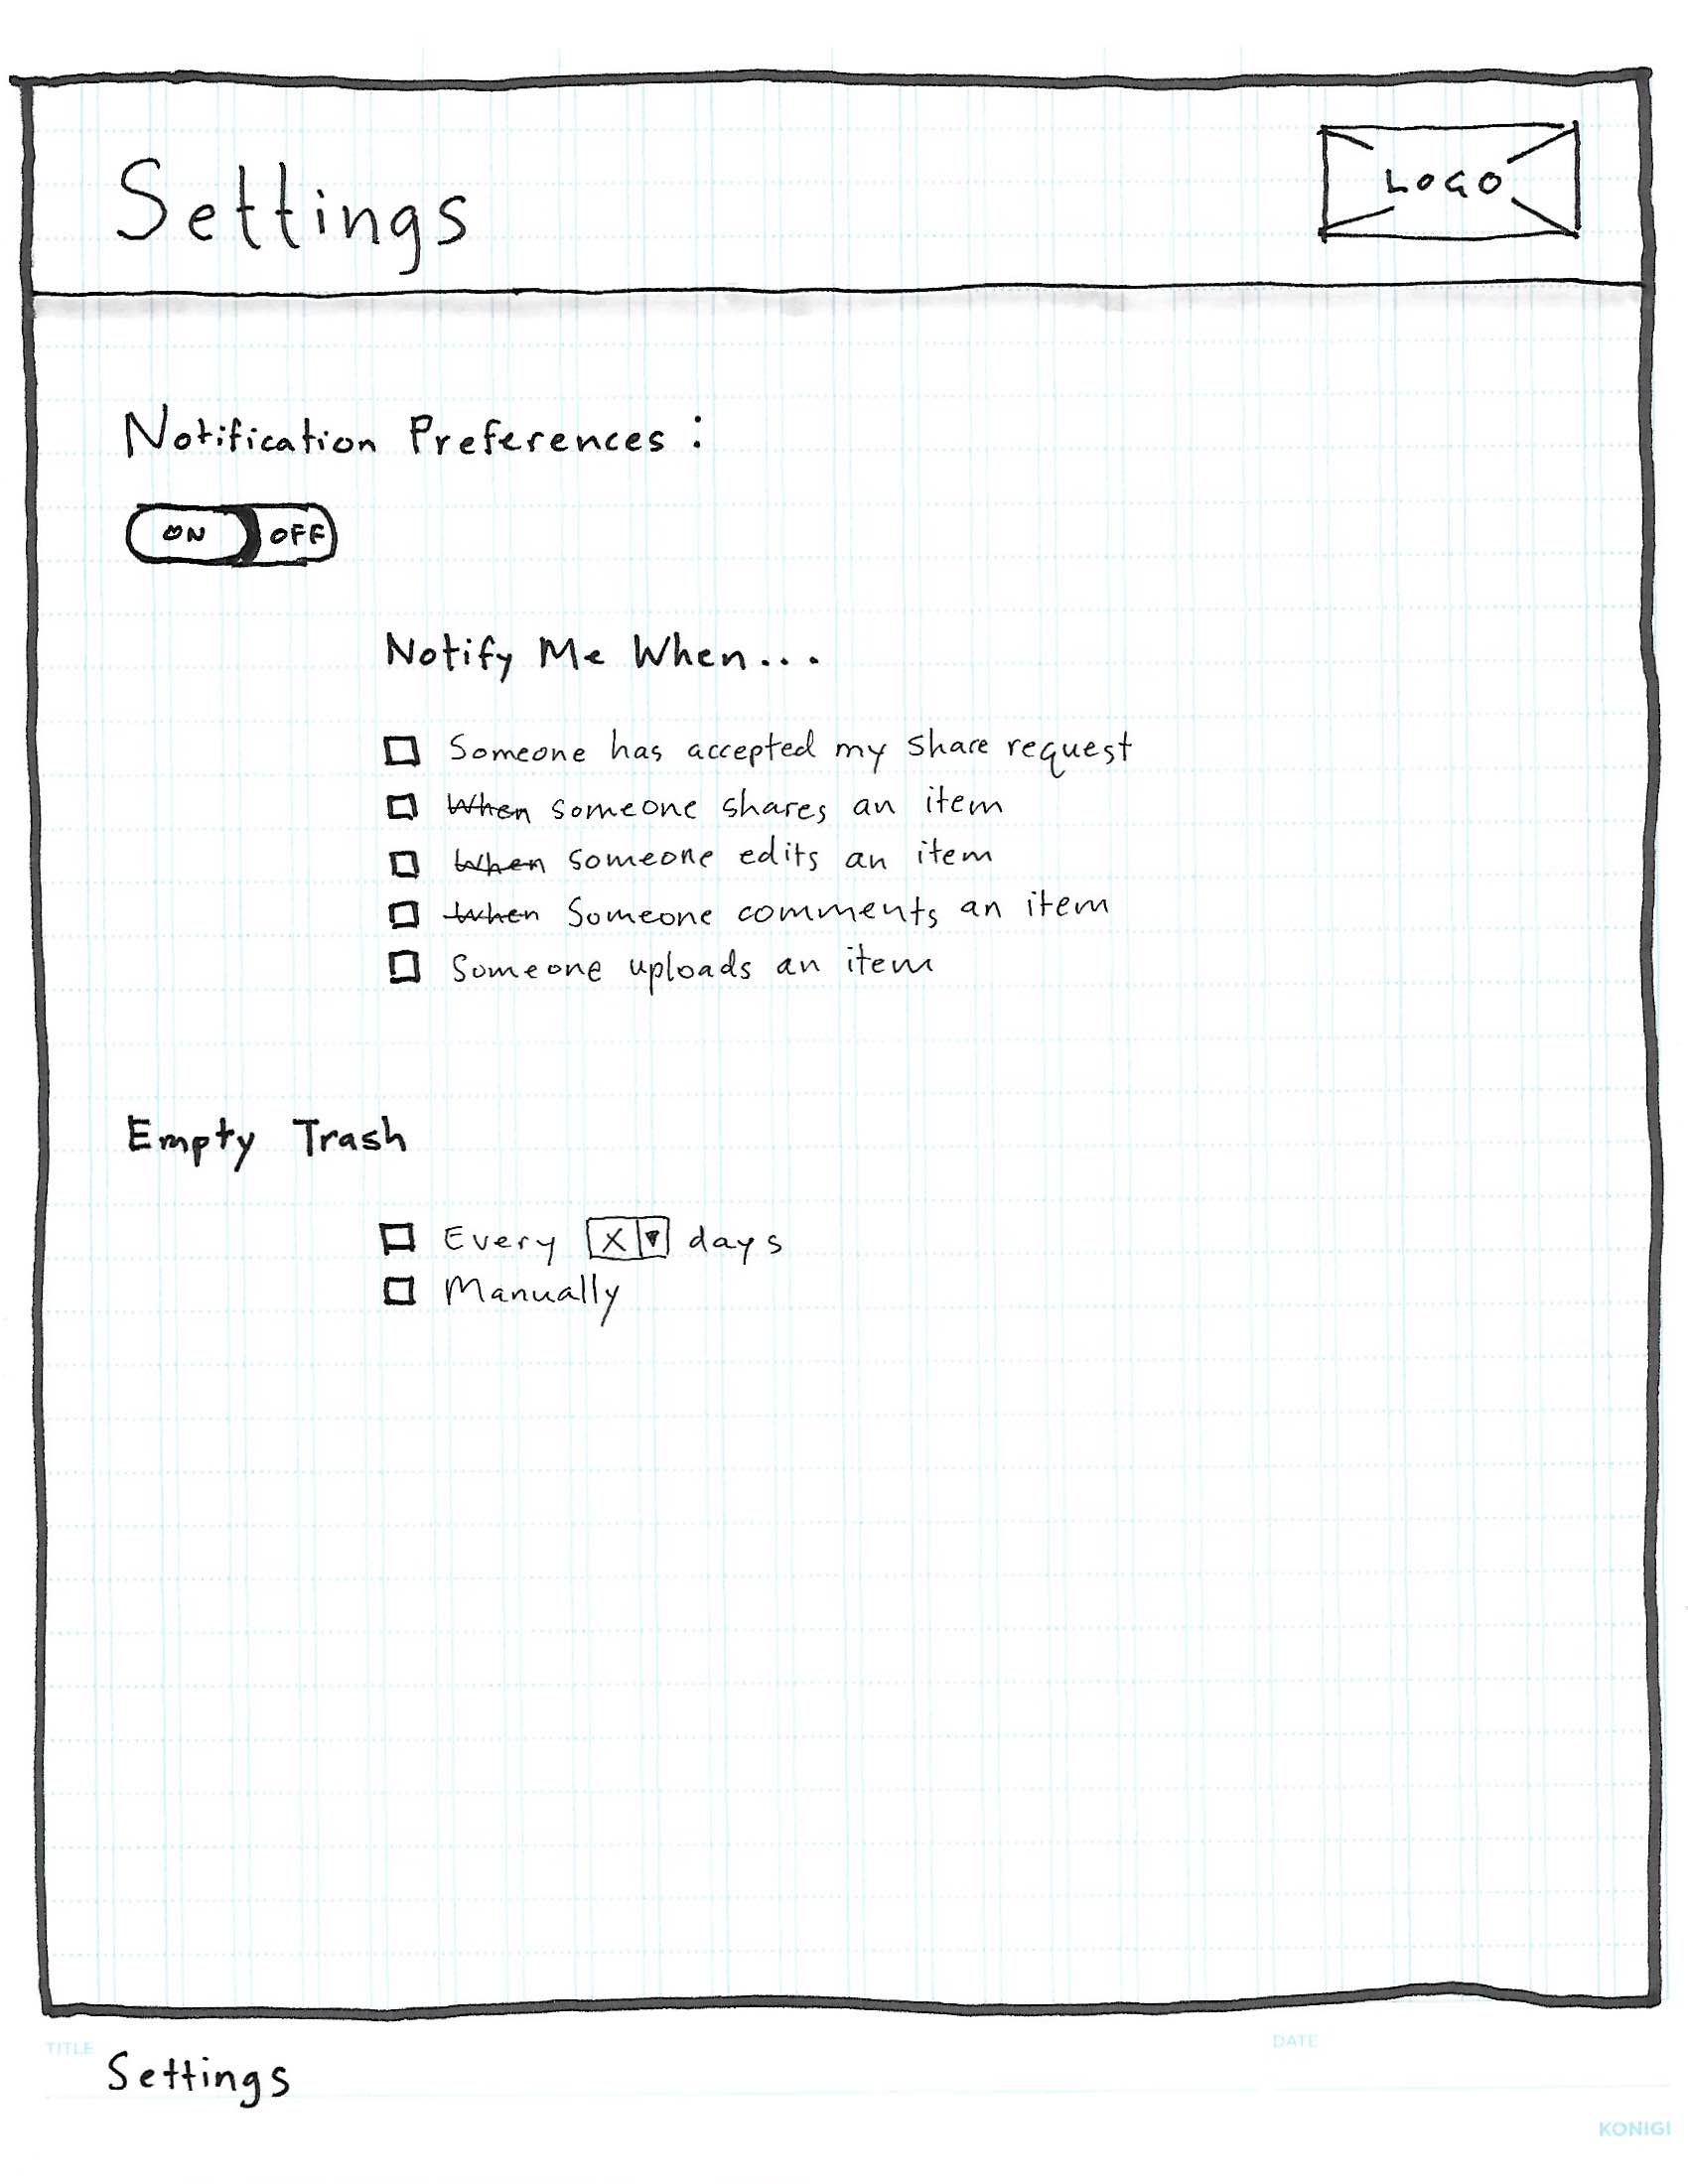 Settings
LOGO
Notification Preferences:
ON OFF
Notify Me When...
Someone has accepted my share request
When someone shares an item
When someone edits an item
When Someone comments an item
Someone uploads an item
Empty Trash
Every X days
Manually
TITLE Settings
DATE
KONIGI